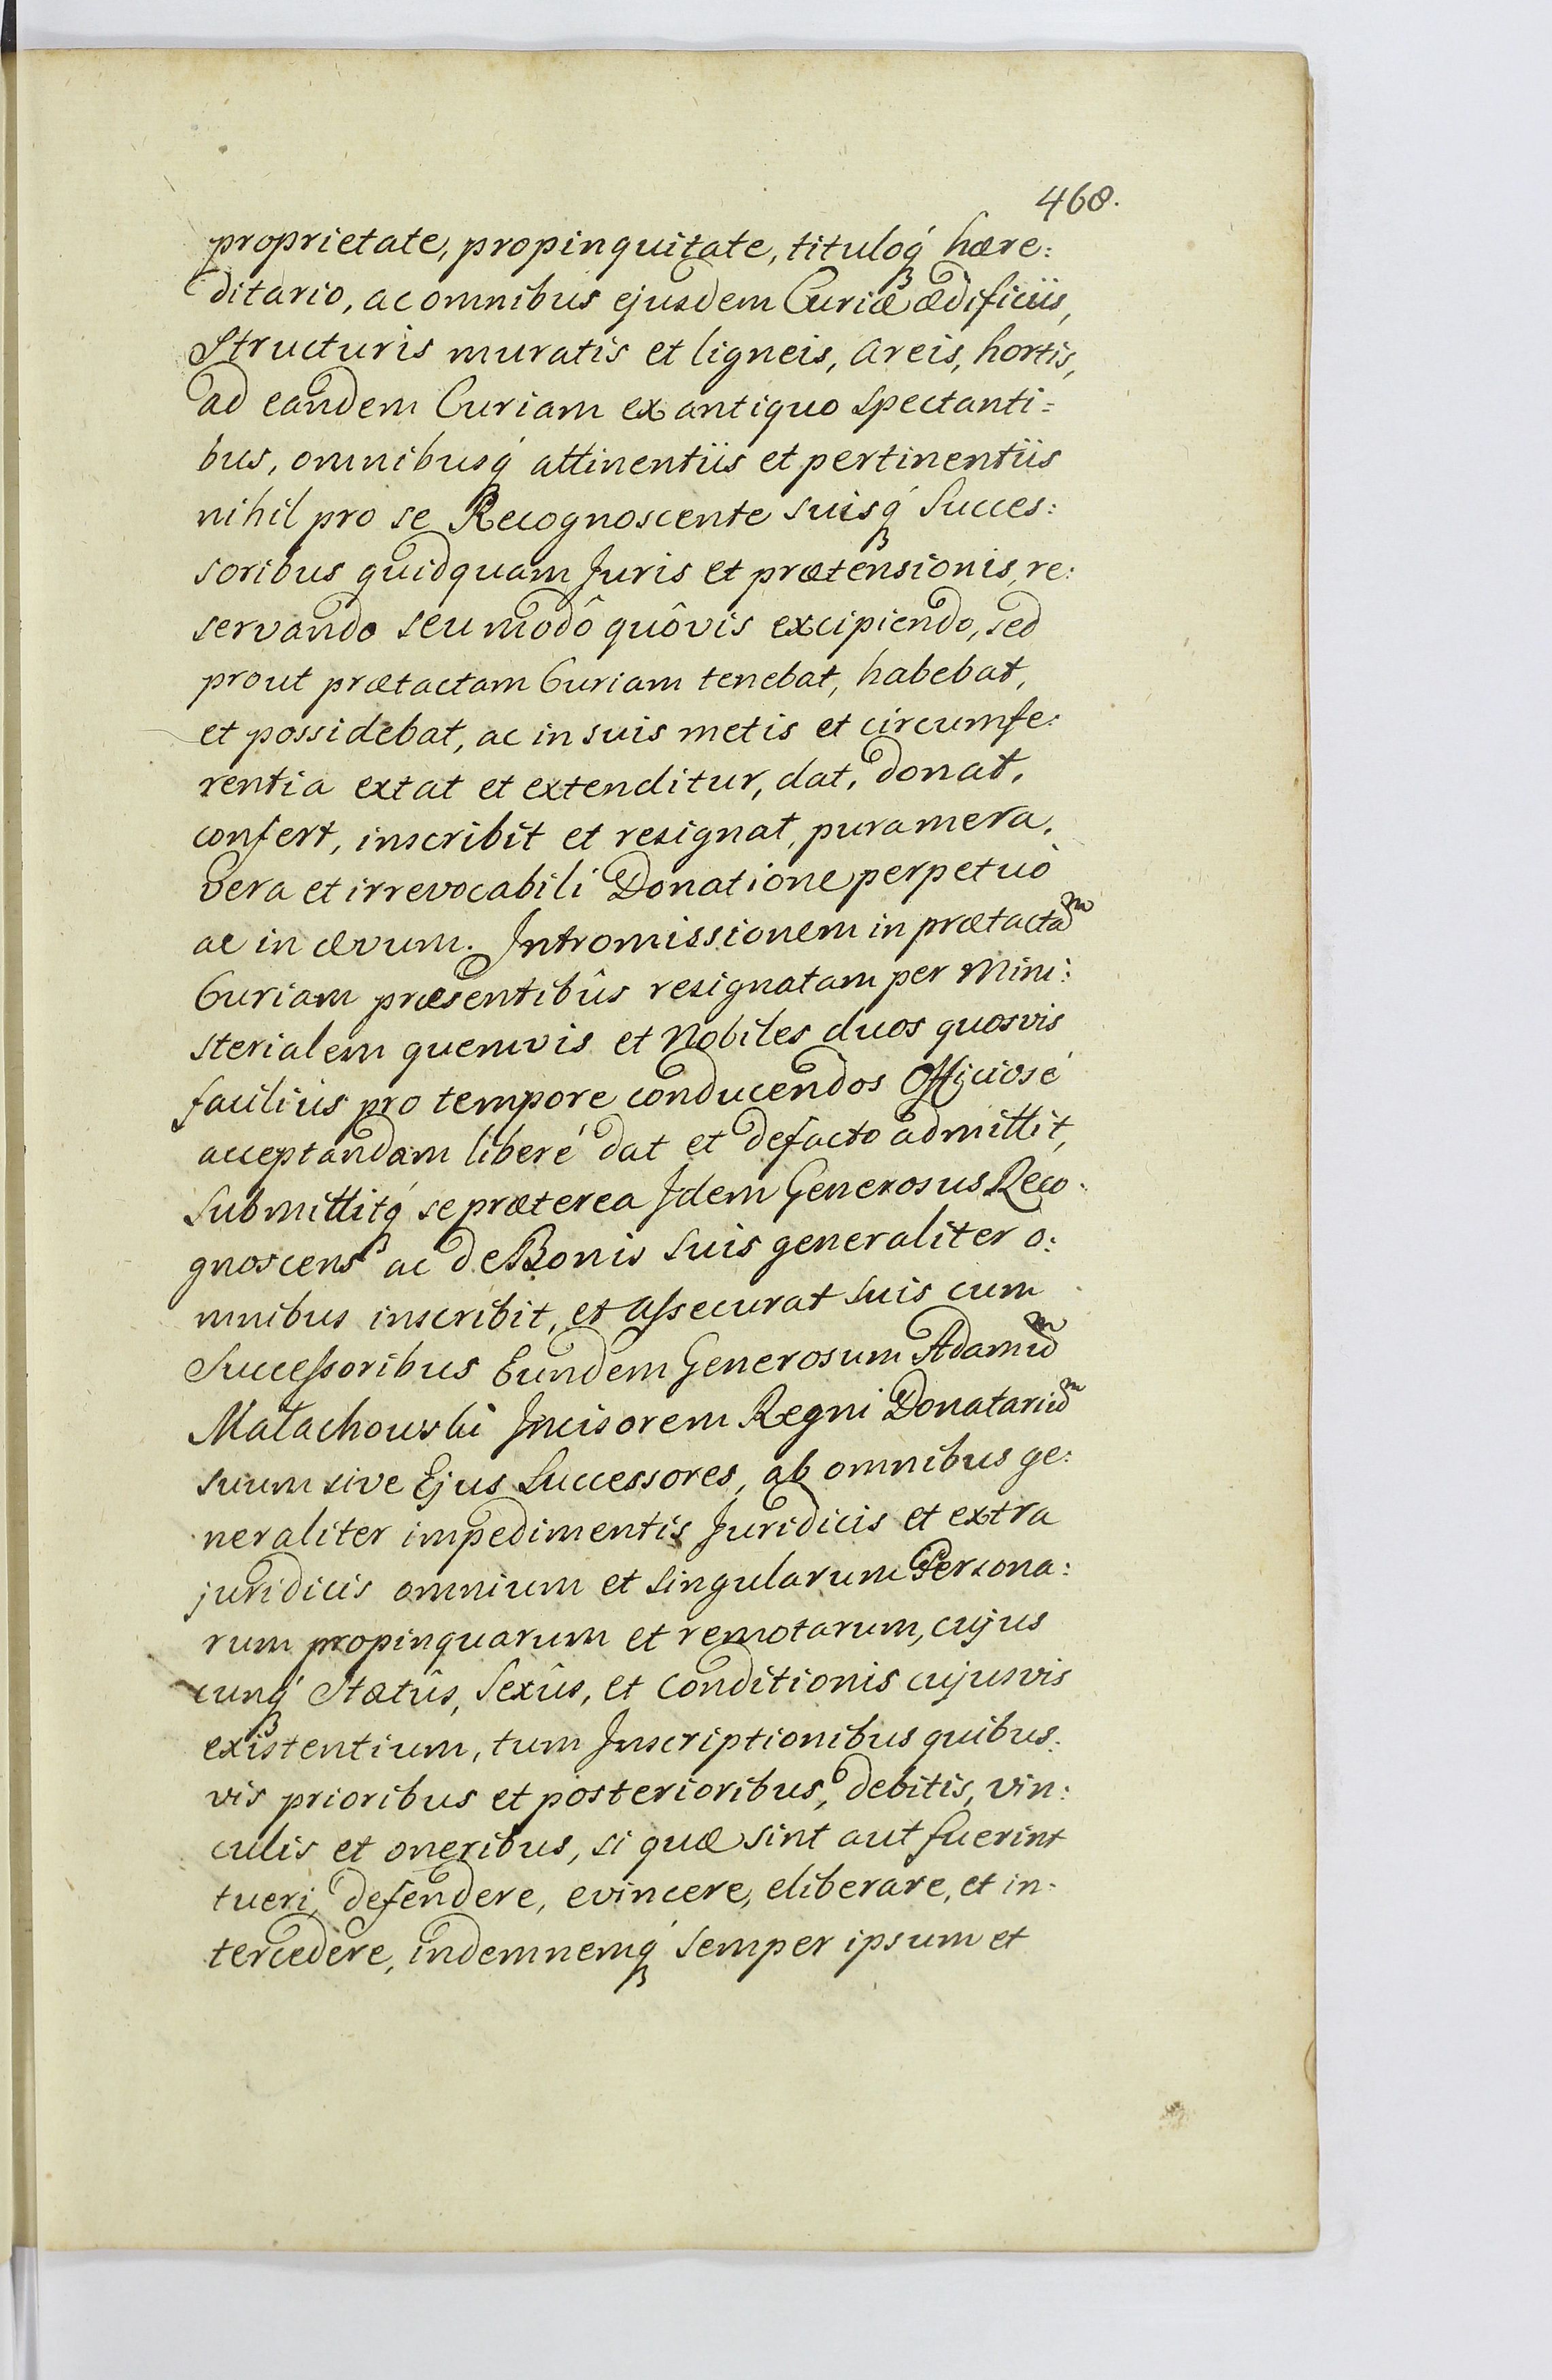 468.
proprietate, propinquitate, tituloq́ꝫ hære:
ditario, ac omnibus ejusdem Curiæ ædificiis,
Structuris muratis et ligneis, areis, hortis,
ad eandem Curiam ex antiquo spectanti=
bus, omnibusq́ꝫ attinentiis et pertinentiis
nihil pro se Recognoscente suisq́ꝫ Succes:
soribus quidquam Juris et prætensionis re:
servando seu modô quôvis excipiendo, sed
prout prætactam Curiam tenebat, habebat,
et possidebat, ac in suis metis et circumfe:
rentia extat et extenditur, dat, donat,
confert, inscribit et resignat, pura mera,
vera et irrevocabili Donatione perpetuò
ac in ævum. Intromissionem in prætactaᵐ
Curiam præsentibûs resignatam per Mini:
sterialem quemvis et Nobiles duos quosvis
faciliùs pro tempore conducendos Officiosé
acceptandam liberé dat et defacto admittit,
Submittitq́ꝫ se præterea Idem Generosus Reco:
gnoscens ac de Bonis suis generaliter o:
mnibus inscribit, et assecurat suis cum
Successoribus Eundem Generosum Adamuᵐ
Małachowski Incisorem Regni Donatariuᵐ
suum sive Ejus Successores, ab omnibus ge:
neraliter impedimentis Juridicis et extra
juridicis omnium et singularum Persona:
rum propinquarum et remotarum, cujus
cunq́ꝫ Statûs, Sexûs, et Conditionis cujusvis
existentium, tum Inscriptionibus quibus:
vis prioribus et posterioribus, debitis, vin:
culis et oneribus, si quæ sint aut fuerint
tueri, defendere, evincere, eliberare, et in:
tercedere, indemnemq́ꝫ semper ipsum et